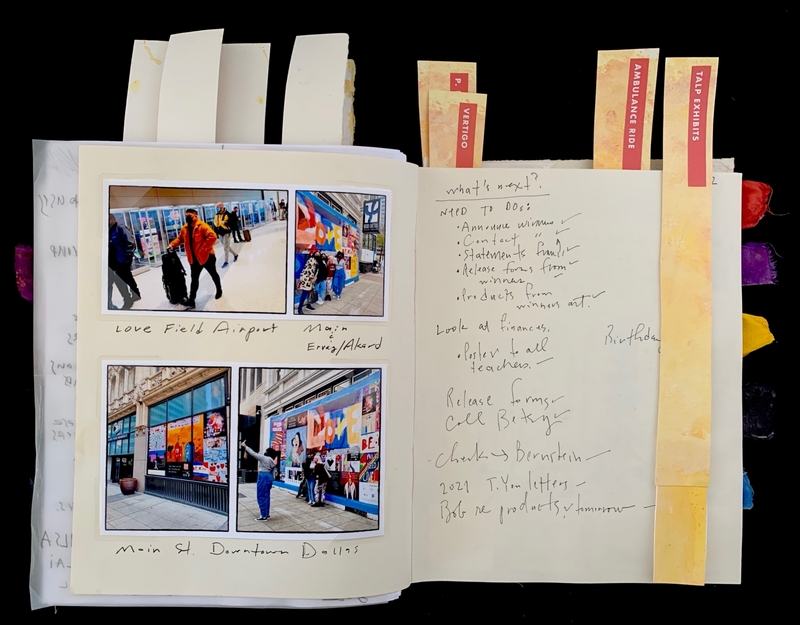 P.
VERTIGO
AMBULANCE RIDE
TALP EXHIBITS
LOVE
Love Field Airport
Main
& Ervay/Akard
LOVE
Main St. Downtown Dallas
2
what's next?
NEED TO DO:
• Announce winners ✓
• Contact " ✓
• Statements from " ✓
• Release forms from ✓
winners
• Products from
winners art. ✓
Look at finances.
Birthday
• Poster to all
teachers. ✓
Release forms ✓
Call Betsy ✓
- Checks → Bernstein -
2021 T. You letters -
Bob re products tomorrow -